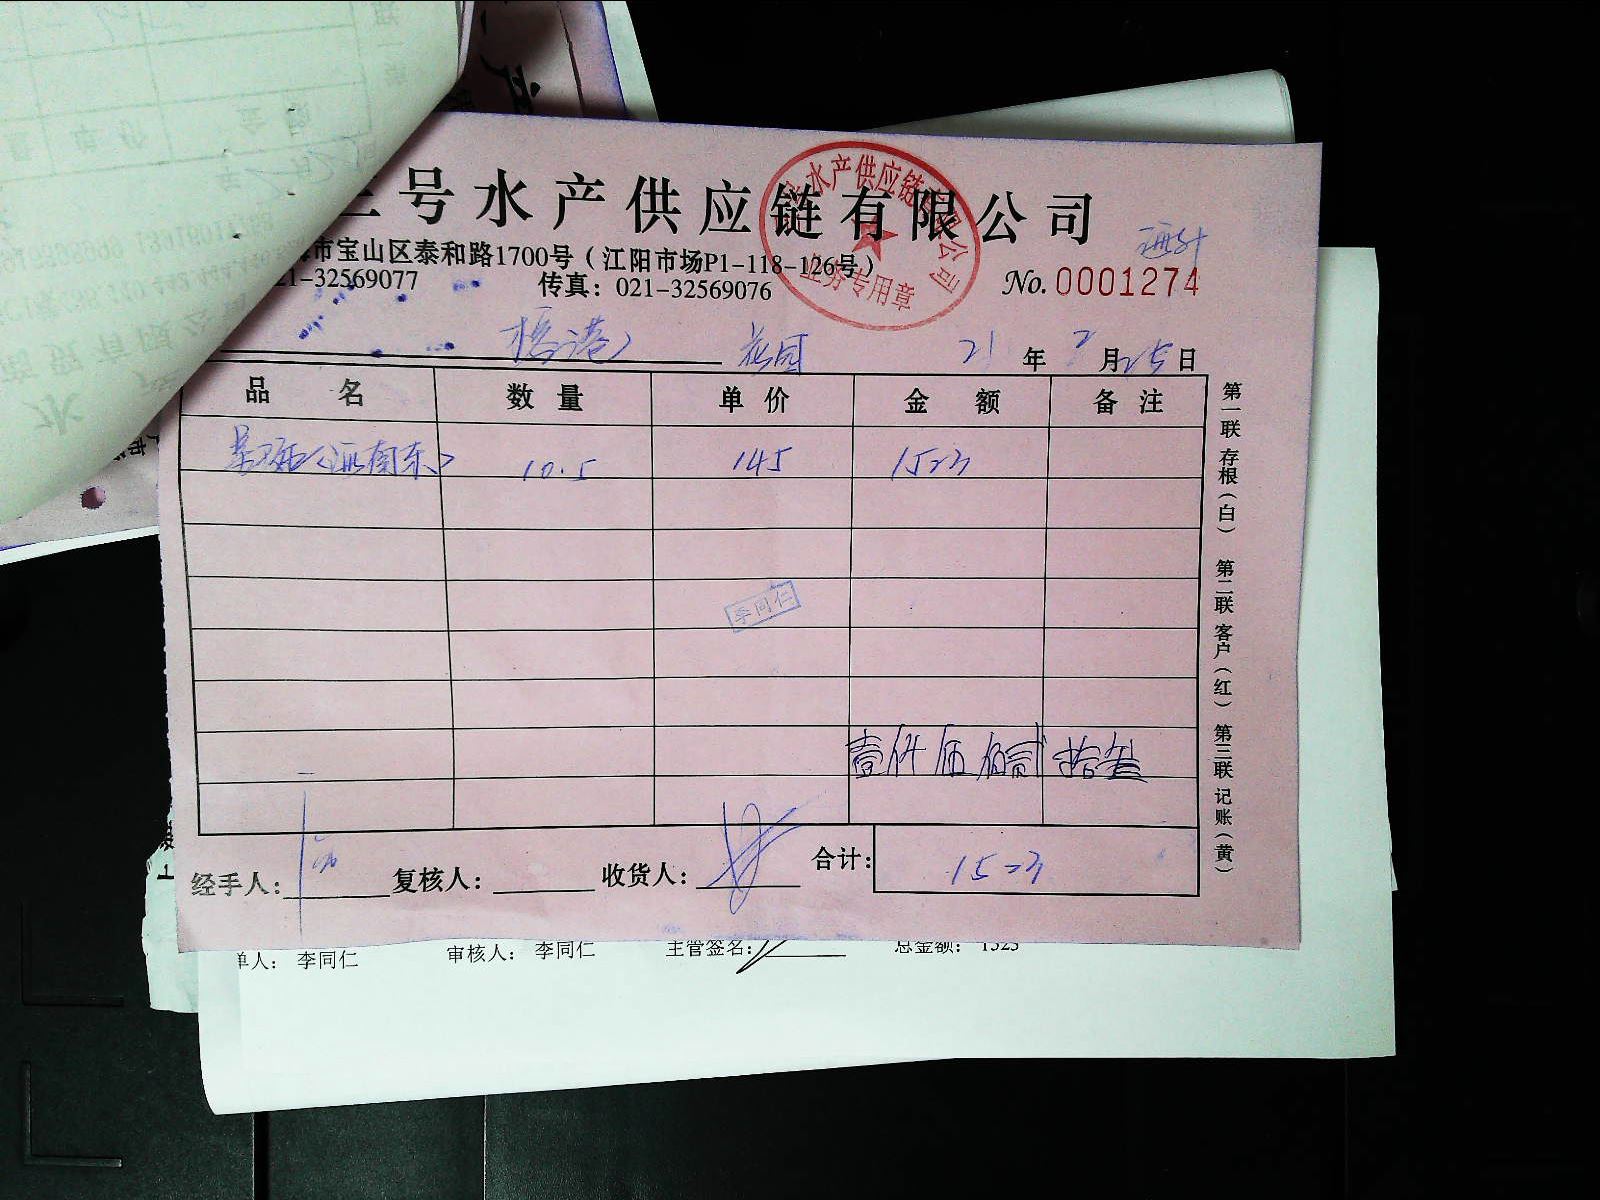 三号水产供应链有限公司
市宝山区泰和路1700号（江阳市场P1-118-126号）
21-32569077 传真：021-32569076 No.0001274
花园 21年2月25日
品名 数量 单价 金额 备注
10.5 145 1523
李同仁
壹仟伍佰贰拾叁
经手人： 复核人： 收货人： 合计： 1523
第一联 存根（白） 第二联 客户（红） 第三联 记账（黄）
水产供应链有限公司
业务专用章
单人： 李同仁 审核人： 李同仁 主管签名： 总金额： 1523